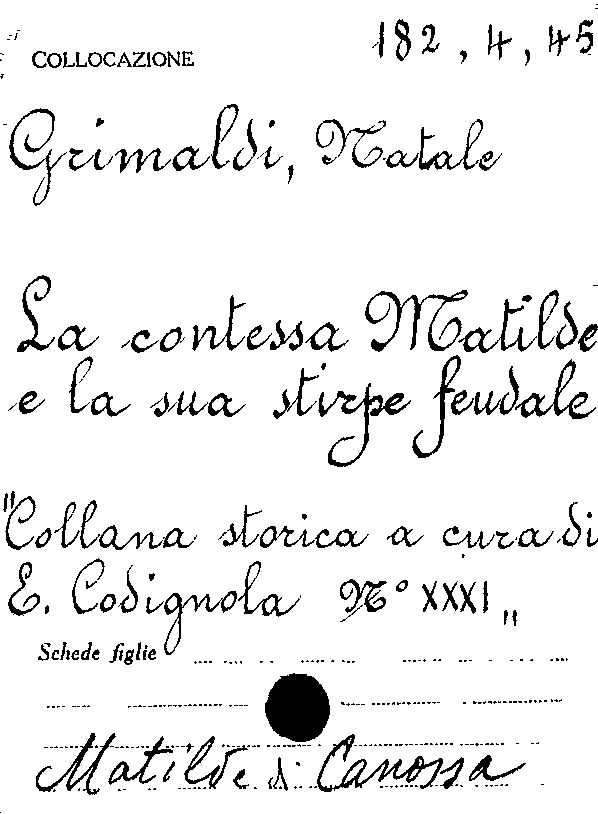 COLLOCAZIONE 182, 4, 45
Grimaldi, Natale
La contessa Matilde
e la sua stirpe feudale
"Collana storica a cura di
E. Codignola N° XXXI"
Schede figlie
Matilde di Canossa